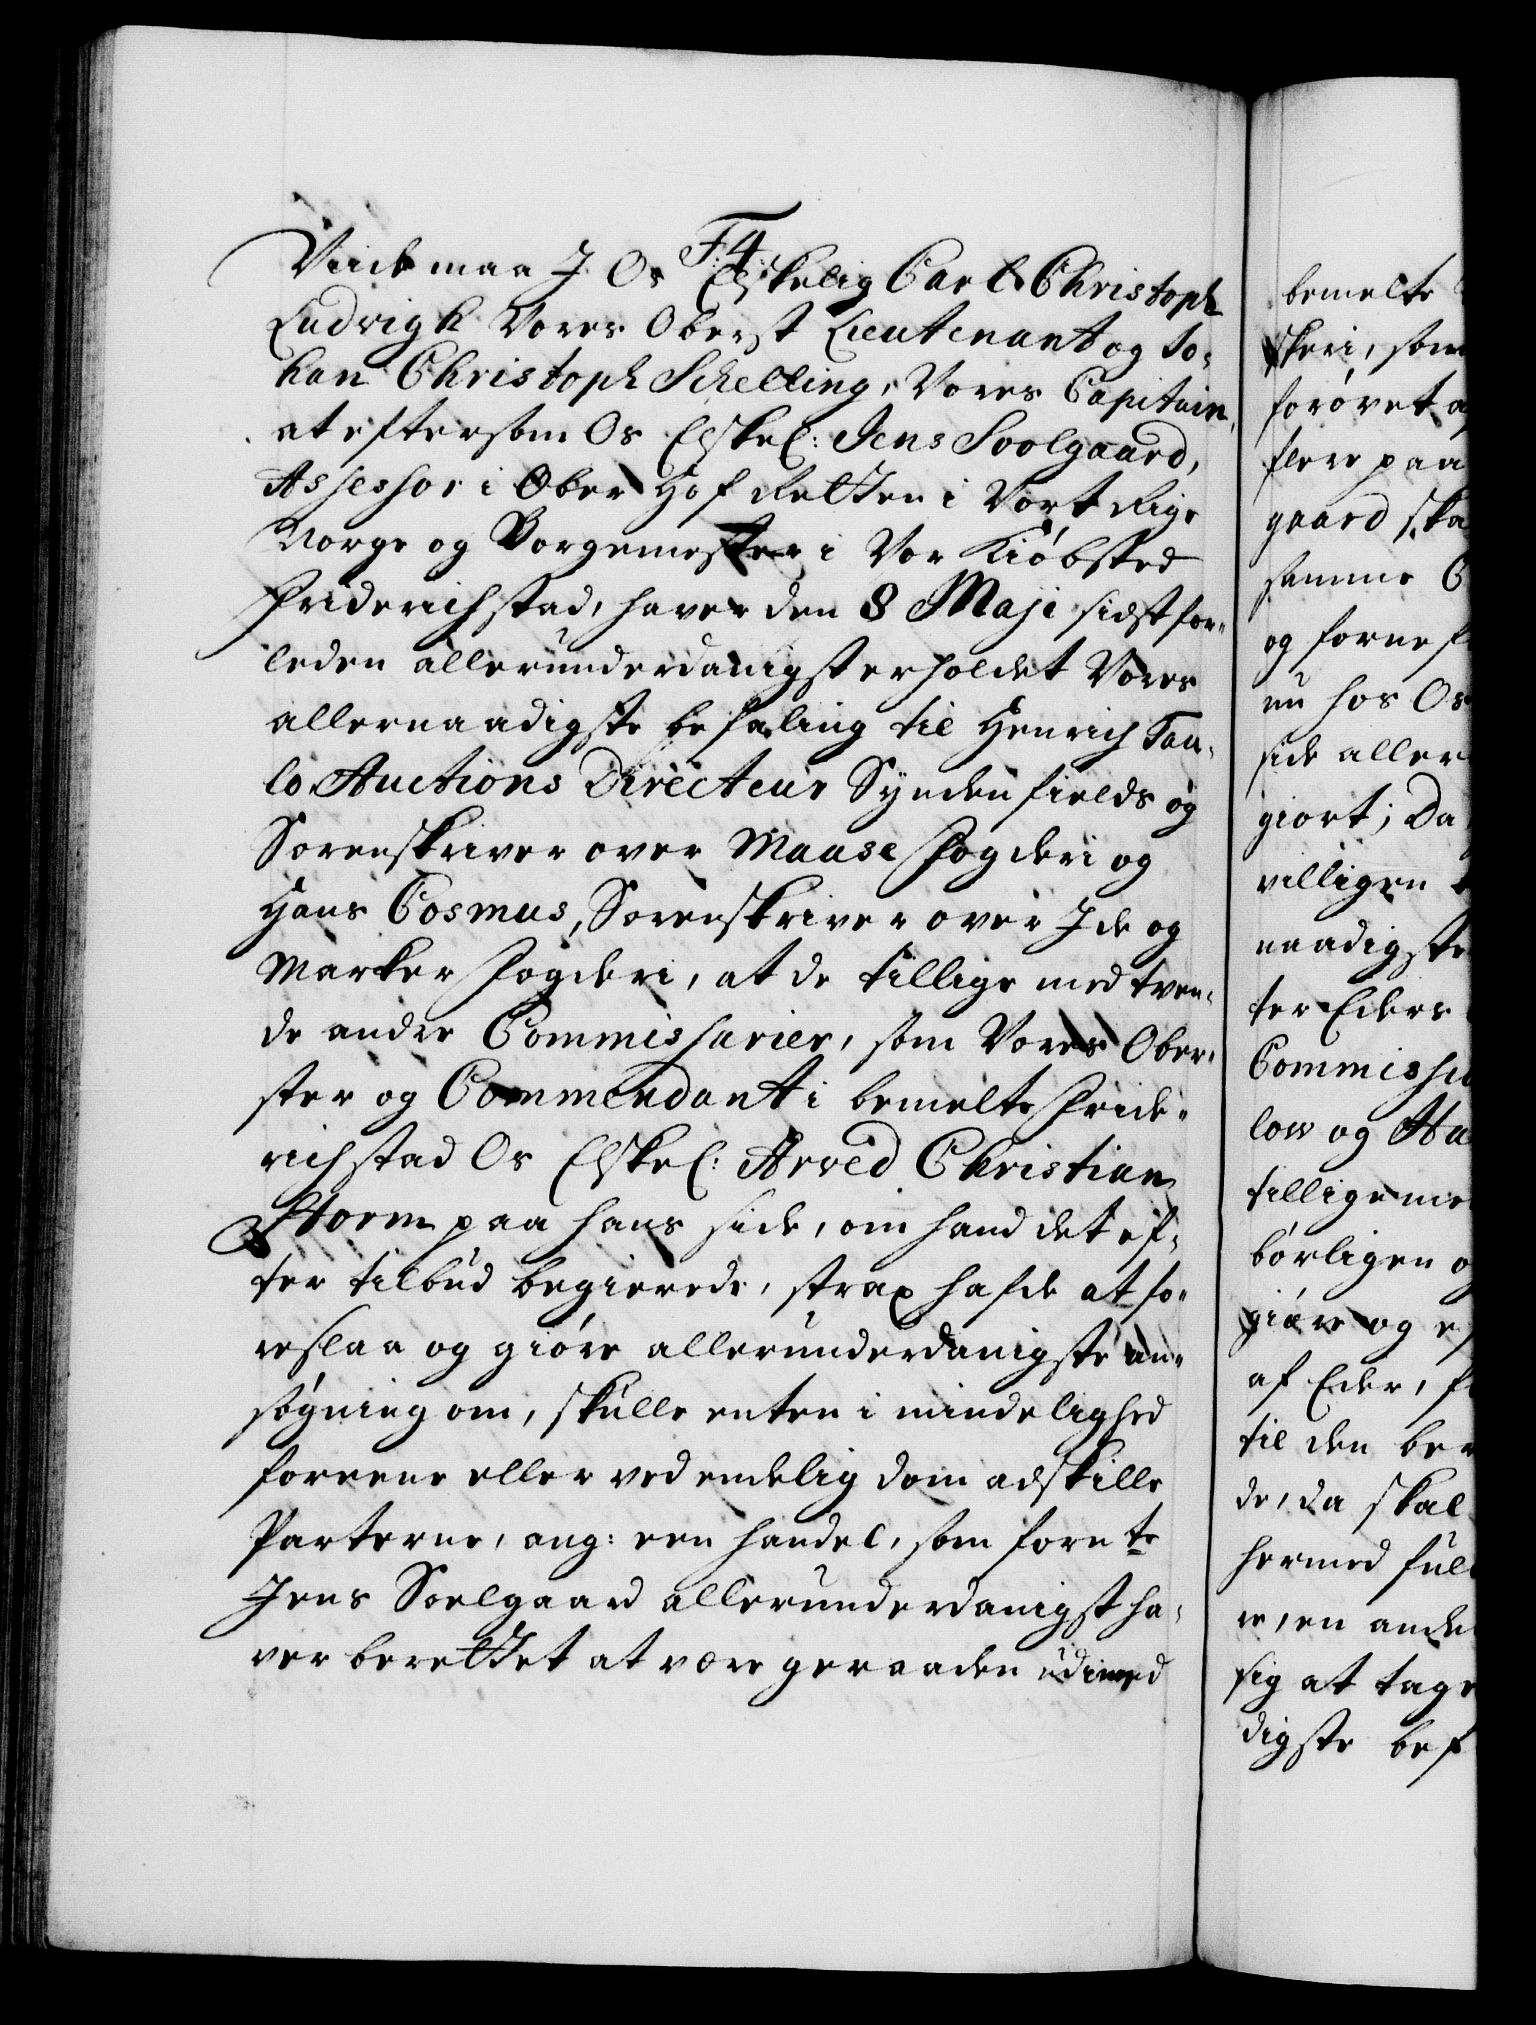 F: 4.
Viide maa I Os Elskelig Carl Christoph
Ludvigh Vores Oberst Lieutenant og Jo-
han Christoph Schelling, Vores Capitain,
at eftersom Os Elskel: Jens Soelgaard,
Assessor i Ober Hof Retten i Vort Rige
Norge og Borgemester i Vor Kiöbsted
Friderichstad, haver den 8 Maji sidst for-
leden allerunderdanigst erholdet Vores
allernaadigste befaling til Henrich Tau-
lo Auctions Directeur Synden fields og
Sorenskriver over Maase Fogderi og
Hans Cosmus, Sorenskriver over Ide og
Marker Fogderi, at de tillige med tven-
de andre Commissarier, som Vores Ober-
ster og Commendant i bemelte Fride-
richstad Os Elskel: Arved Christian
Storm paa hans side, om hand det ef-
ter tilbud begierede, strax hafde at fo-
reslaa og giöre allerunderdanigste an-
søgning om, skulle enten i mindelighed
foreene eller ved endelig dom adskille
Parterne, ang: een handel, som forn te
Jens Soelgaard allerunderdanigst ha-
ver berettet at være geraaden udi med
bemelte
skeri, som
forøvet a
flere paa
gaard ska
samme C
og forne
nu hos Os
side aller
giort; Da
villigen
naadigste
ter Eders
Commissa
low og Ha
tillige me
børligen o
giøre og e
af Eder, f
til den be
de, da skal
hermed ful
re, en ande
sig at tage
digste bef